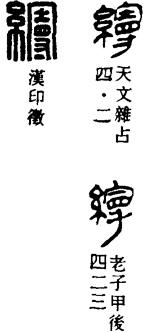 天文雜占
四·二
老子甲後
四二三
漢印徵